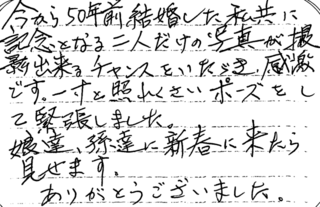 今から50年前結婚した私共に
記念となる二人だけの写真が撮
影出来るチャンスをいただき感激
です。一寸と照れくさいポーズをし
て緊張しました。
娘達、孫達に新春に来たら
見せます。
ありがとうございました。